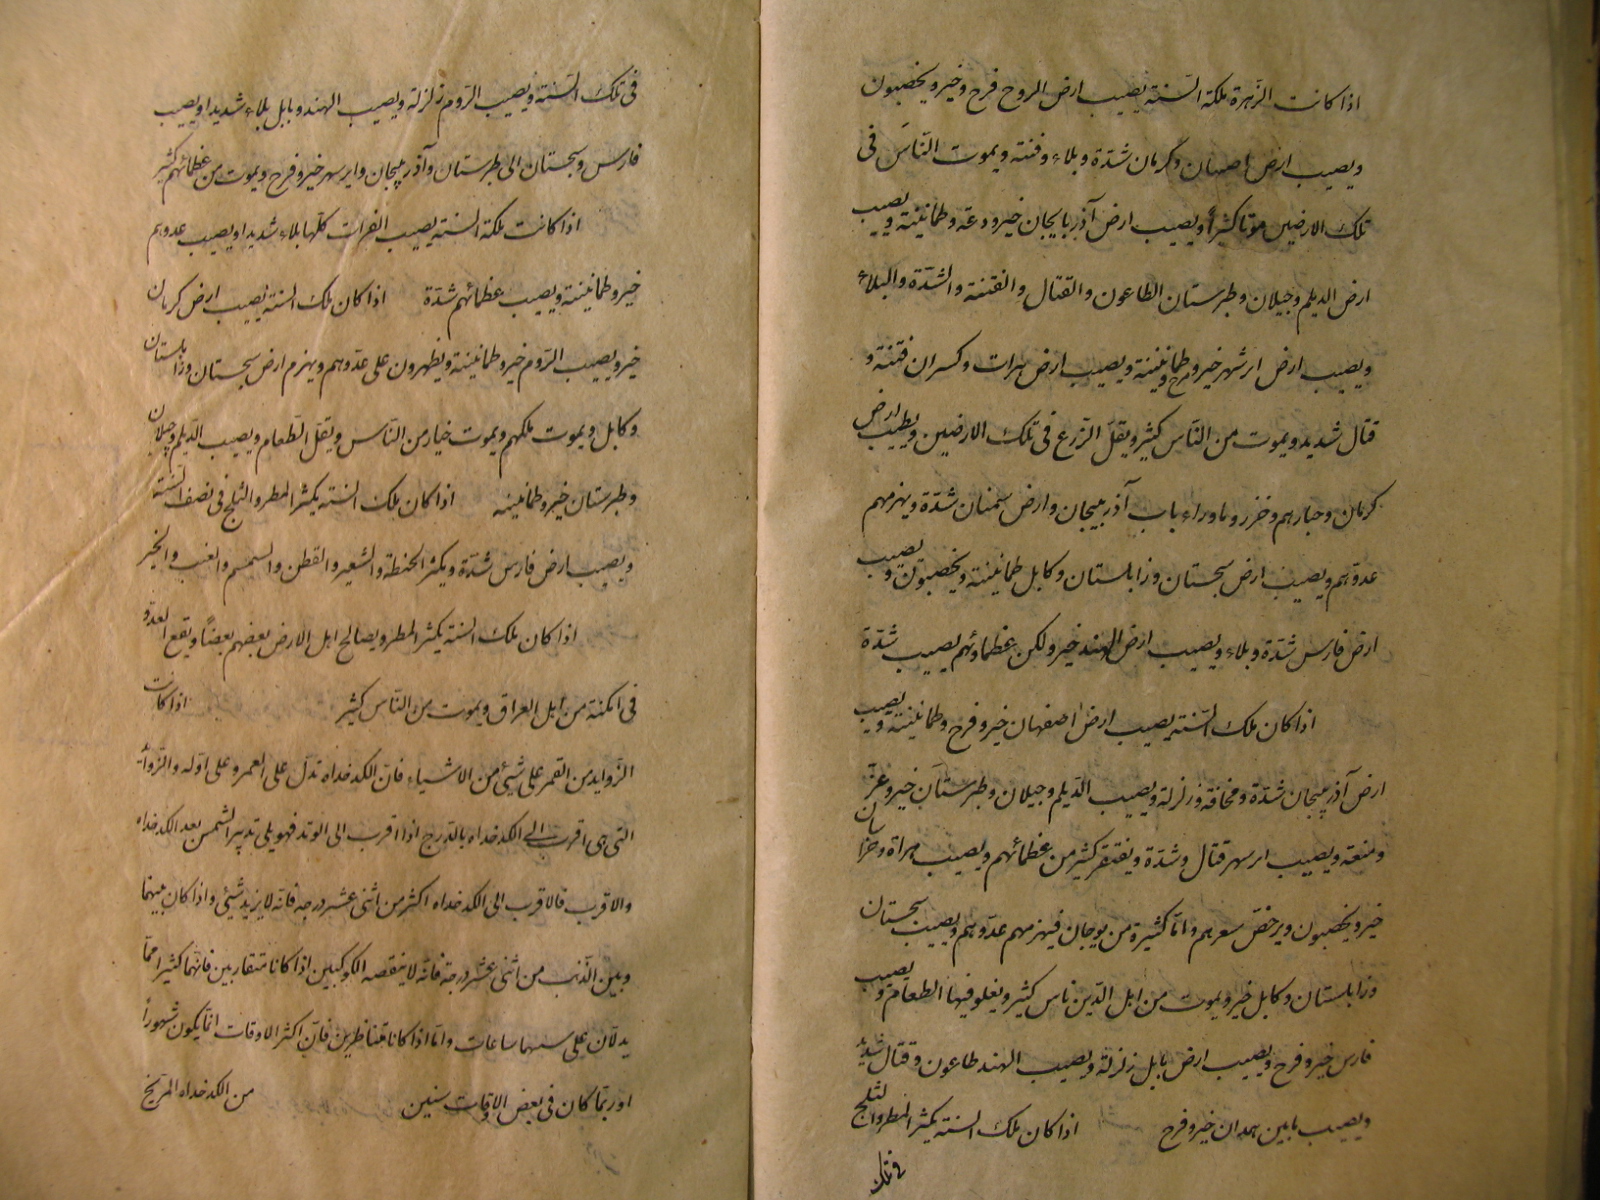 اذا كانت الزهرة ملكة السنة يصيب ارض الروح فرح وخير ويخصبون
ويصيب ارض اصبهان وكرمان شدّة وبلاء وفتنة ويموت النّاس فى
تلك الارضين موتا كثيراً ويصيب ارض آذربايجان خير ودعة وطمانينة ويصيب
ارض الديلم وجيلان وطبرستان الطاعون والقتال والفتنة والشدّة والبلاء
ويصيب ارض ابرشهر خير وفرح وطمانينة ويصيب ارض هرات وكسران فتنة و
قتال شديد ويموت من النّاس كثير ويقلّ الزرع فى تلك الارضين ويطيب ارض
كرمان وجبارهم وخزر وماوراء باب آذربيجان وارض سمنان شدّة ويهزمهم
عدوّهم ويصيب ارض سجستان وزابلستان وكابل طمانينة ويخصبون ويصيب
ارض فارس شدّة وبلاء ويصيب ارض الهند خير ولكن عظماؤهم يصيب شدّة
اذا كان ملك السّنة يصيب ارض اصفهان خير وفرح وطمانينة ويصيب
ارض آذربيجان شدّة ومخافة وزلزلة ويصيب الدّيلم وجيلان وطبرستان خير وعزّ
ومنعة ويصيب ابرسهر قتال وشدّة ويفتقر كثير من عظمائهم ويصيب هراة وخراسان
خير ويخصبون ويرخص سعرهم وامّا كثيرة من يوجان فيهزمهم عدوّهم ويصيب سجستان
وزابلستان وكابل خير ويموت من اهل الدّين ناس كثير ويغلو فيها الطعام ويصيب
فارس خير وفرح ويصيب ارض بابل زلزلة ويصيب الهند طاعون وقتال شديد
ويصيب مابين همدان خير وفرح اذا كان ملك السنة يكثر المطر والثلج
فى تلك
فى تلك السّنة ويصيب الرّوم زلزلة ويصيب الهند وبابل بلاء شديدا ويصيب
فارس وسجستان الى طبرستان وآذربيجان وابرسهر خير وفرح ويموت من عظمائهم كثير
اذا كانت ملكة السنة يصيب الفرات كلّها بلاء شديدا ويصيب عدوهم
خير وطمانينة ويصيب عظمائهم شدّة اذا كان ملك السنة يصيب ارض كرمان
خير ويصيب الرّوم خير وطمانينة ويظهرون على عدّوهم ويهزم ارض سجستان وزابلستان
وكابل ويموت ملكهم ويموت خيار من النّاس ويقلّ الطّعام ويصيب الدّيلم وجيلان
وطبرستان خير وطمانينه اذا كان ملك السّنة يكثر المطر والثلج فى نصف السّنة
ويصيب ارض فارس شدّة ويكثر الحنطة والشعير والقطن والسمسم والعنب والخير
اذا كان ملك السنة يكثر المطر ويصالح اهل الارض بعضهم بعضًا ويقع العدوّ
فى امكنة من اهل العراق ويموت من النّاس كثير اذا كانت
الزّوايد من القمر على شيئ من الاشياء فان الكدخداه تدلّ على العمر وعلى اوّله والزّوائد
التى هى اقرب الى الكدخداه بالدّرج اذا اقرب الى الوتد فهو يلى تدبير الشمس بعد الكدخداه
والاقرب فالاقرب الى الكدخداه اكثر من اثنى عشر درجة فانّه لايزيد شيئى واذا كان بينهما
وبين الذّنب من اثنى عشر درجة فانّه لاينقصه الكوكبين اذا كانا متقاربين فانهما كثيرا مّا
يدلّان على سنهما ساعات وامّا اذا كانا متناظرين فانّ اكثر الاوقات انّما يكون شهوراً
اوربّما كان فى بعض الاوقات سنين من الكدخداه المريخ